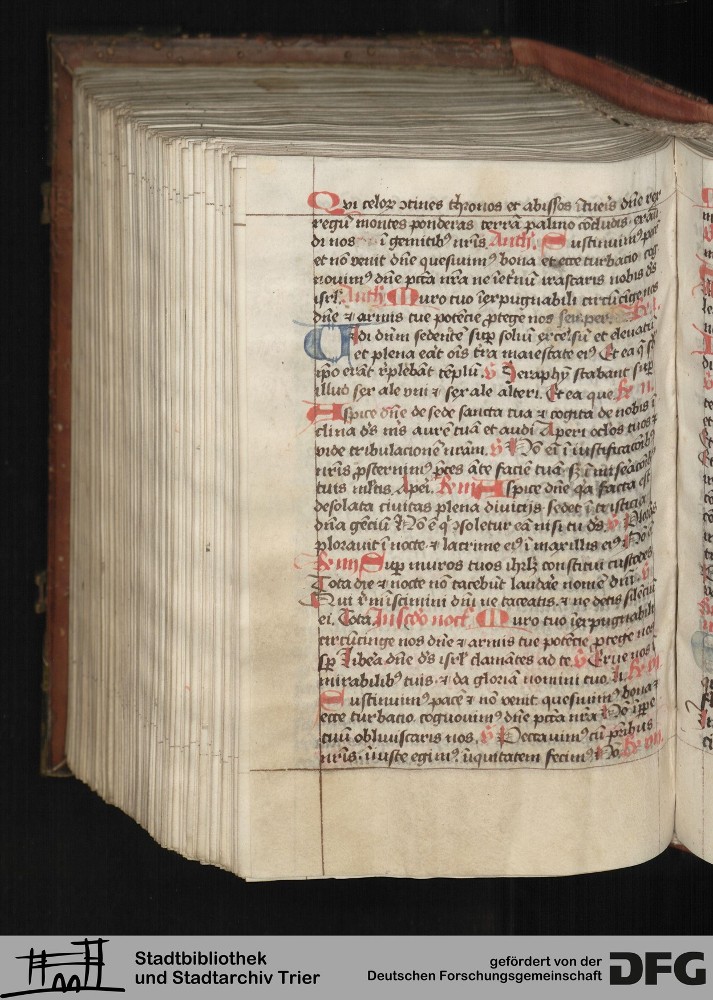 Qvi celoꝝ ↄtines thronos et abissos ītueis dn̄e rex
regū montes ponderas terrā palmo cōcludis exau
di nos ī gemitibꝰ nr̄is Anthˀ. Sustinuimꝰ pacē
et nō venit dn̄e quesiuimꝰ bona et ecce turbacio cog
nouimꝰ dn̄e pctā nrā ne īet̓nū irascaris nobis ds̄
isrl̓. Antħ Muro tuo īexpugnabili circūcinge nos
dn̄e ⁊ armis tue potēcie ꝓtege nos semper. R̄ I.
Uidi dn̄m sedentē suꝑ soliū excelsū et eleuatū
et plena erāt oīs t̓ra maiestate eiꝰ Et ea q̄ sb̓
ip̄o erāt replēbāt tēplū. V̄ Seraphȳ stabant suꝑ
illud sex ale vni ⁊ sex ale alteri. Et ea que. R̄ II.
Aspice dn̄e de sede sancta tua ⁊ cogita de nobis ī
clina ds̄ ms̄ aurē tuā et audi Aperi oclos tuos ⁊
vide tribulacionē nr̄am. V̄ Nō em̄ ī iustificacōibꝰ
nr̄is ꝓsternimꝰ p̄ces āte faciē tuā sꝫ ī miseracōibꝰ
tuis ml̓tis. Aperi. R̄ III Aspice dn̄e qa facta est
desolata ciuitas plena diuicijs sedet ī tristicia
dn̄a genciū Nō ē q ↄsoletur eā nisi tu ds̄. V̄ Plorās
plorauit ī nocte ⁊ lacrime eiꝰ ī maxillis eiꝰ Nō ē
R̄ IIII Suꝑ muros tuos ihrl̓m constitui custodes
Tota die ⁊ nocte nō tacebūt laudare nomē dn̄i. V̄
Qui reminiscimini dn̄i ne taceatis. ⁊ ne detis silēciū
ei. Tota. In scd̓o noct̓. Muro tuo īexpugnabili
circūcinge nos dn̄e ⁊ armis tue potēcie ꝓtege nos
sꝑ Libera dn̄e ds̄ isrl̓ clamātes ad te. V̄ Erue nos ī
mirabilibꝰ tuis. ⁊ da gloriā nomini tuo. Li. R̄ VI
Sustinuimꝰ pacē ⁊ nō venit quesiuimꝰ bona ⁊
ecce turbacio cognouimꝰ dn̄e pctā nrā Nō īꝑpe
tuū obliuiscaris nos. V̄ Peccauimꝰ cū pribus
nr̄is. īiuste egimꝰ. iniquitatem fecimꝰ Nō. R̄ VII.
Stadtbibliothek
und Stadtarchiv Trier
gefördert von der
Deutschen Forschungsgemeinschaft
DFG